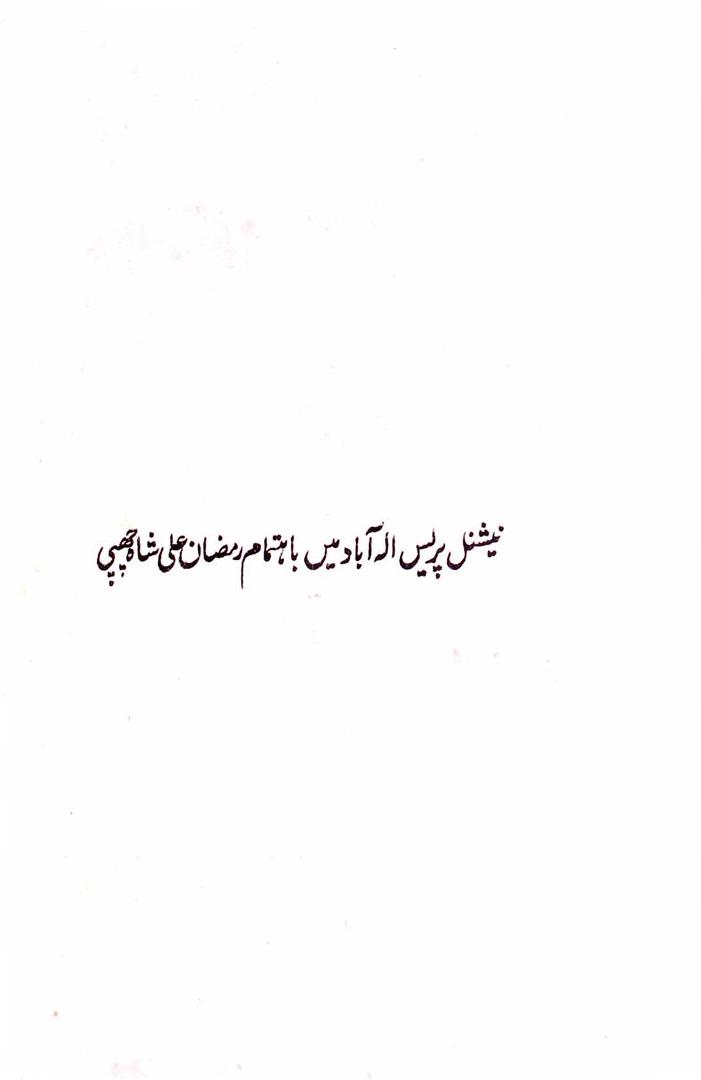 نیشنل پریس الہ آباد میں باہتمام رمضان علی شاہ چھپی